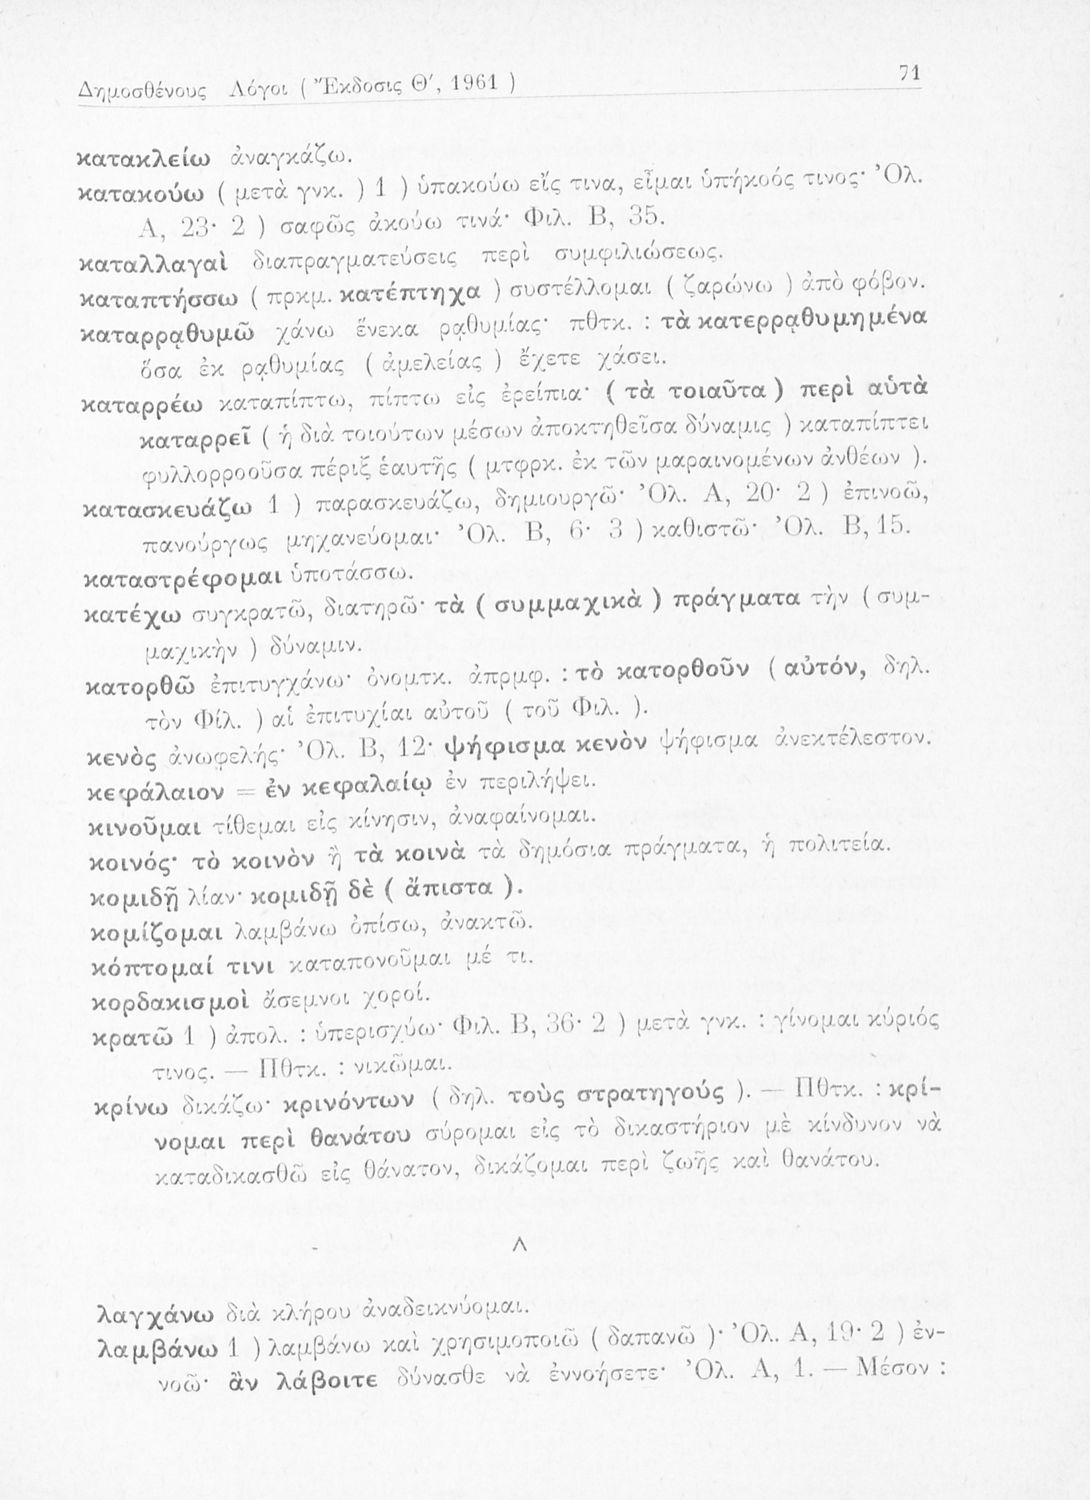 Δημοσθένους Λόγοι ( Ἔκδοσις Θʹ, 1961 ) 71
κατακλείω ἀναγκάζω.
κατακούω ( μετὰ γνκ. ) 1 ) ὑπακούω εἴς τινα, εἶμαι ὑπήκοός τινος· Ὀλ.
Α, 23· 2 ) σαφῶς ἀκούω τινά· Φιλ. Β, 35.
καταλλαγαὶ διαπραγματεύσεις περὶ συμφιλιώσεως.
καταπτήσσω ( πρκμ. κατέπτηχα ) συστέλλομαι ( ζαρώνω ) ἀπὸ φόβον.
καταρρᾳθυμῶ χάνω ἕνεκα ρᾳθυμίας· πθτκ. : τὰ κατερρᾳθυμημένα
ὅσα ἐκ ρᾳθυμίας ( ἀμελείας ) ἔχετε χάσει.
καταρρέω καταπίπτω, πίπτω εἰς ἐρείπια· ( τὰ τοιαῦτα ) περὶ αὑτὰ
καταρρεῖ ( ἡ διὰ τοιούτων μέσων ἀποκτηθεῖσα δύναμις ) καταπίπτει
φυλλορροοῦσα πέριξ ἑαυτῆς ( μτφρκ. ἐκ τῶν μαραινομένων ἀνθέων ).
κατασκευάζω 1 ) παρασκευάζω, δημιουργῶ· Ὀλ. Α, 20· 2 ) ἐπινοῶ,
πανούργως μηχανεύομαι· Ὀλ. Β, 6· 3 ) καθιστῶ· Ὀλ. Β, 15.
καταστρέφομαι ὑποτάσσω.
κατέχω συγκρατῶ, διατηρῶ· τὰ ( συμμαχικὰ ) πράγματα τὴν ( συμ-
μαχικὴν ) δύναμιν.
κατορθῶ ἐπιτυγχάνω· ὀνομτκ. ἀπρμφ. : τὸ κατορθοῦν ( αὐτόν, δηλ.
τὸν Φίλ. ) αἱ ἐπιτυχίαι αὐτοῦ ( τοῦ Φιλ. ).
κενὸς ἀνωφελής· Ὀλ. Β, 12· ψήφισμα κενὸν ψήφισμα ἀνεκτέλεστον.
κεφάλαιον = ἐν κεφαλαίῳ ἐν περιλήψει.
κινοῦμαι τίθεμαι εἰς κίνησιν, ἀναφαίνομαι.
κοινός· τὸ κοινὸν ἢ τὰ κοινὰ τὰ δημόσια πράγματα, ἡ πολιτεία.
κομιδῇ λίαν· κομιδῇ δὲ ( ἄπιστα ).
κομίζομαι λαμβάνω ὀπίσω, ἀνακτῶ.
κόπτομαί τινι καταπονοῦμαι μέ τι.
κορδακισμοὶ ἄσεμνοι χοροί.
κρατῶ 1 ) ἀπολ. : ὑπερισχύω· Φιλ. Β, 36· 2 ) μετὰ γνκ. : γίνομαι κύριός
τινος. — Πθτκ. : νικῶμαι.
κρίνω δικάζω· κρινόντων ( δηλ. τοὺς στρατηγούς ). — Πθτκ. : κρί-
νομαι περὶ θανάτου σύρομαι εἰς τὸ δικαστήριον μὲ κίνδυνον νὰ
καταδικασθῶ εἰς θάνατον, δικάζομαι περὶ ζωῆς καὶ θανάτου.
Λ
λαγχάνω διὰ κλήρου ἀναδεικνύομαι.
λαμβάνω 1 ) λαμβάνω καὶ χρησιμοποιῶ ( δαπανῶ )· Ὀλ. Α, 19· 2 ) ἐν-
νοῶ· ἂν λάβοιτε δύνασθε νὰ ἐννοήσετε· Ὀλ. Α, 1. — Μέσον :